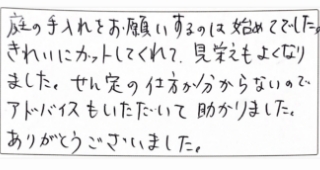 庭の手入れをお願いするのは始めてでした。
きれいにカットしてくれて、見栄えもよくなり
ました。せん定の仕方が分からないので
アドバイスもいただいて助かりました。
ありがとうございました。